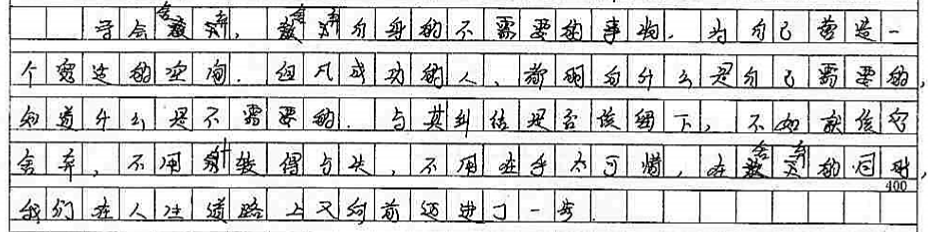 学会舍弃,舍弃自身的不需要的事物,为自己营造一
个宽边的空间.但凡成功的人、都明白什么是自己需要的,
知道什么是不需要的.与其纠结是否该留下,不如就信它
舍弃,不用计较得与失,不用在乎太可惜,在舍弃的同时,
400
我们在人生道路上又向前迈进了一步